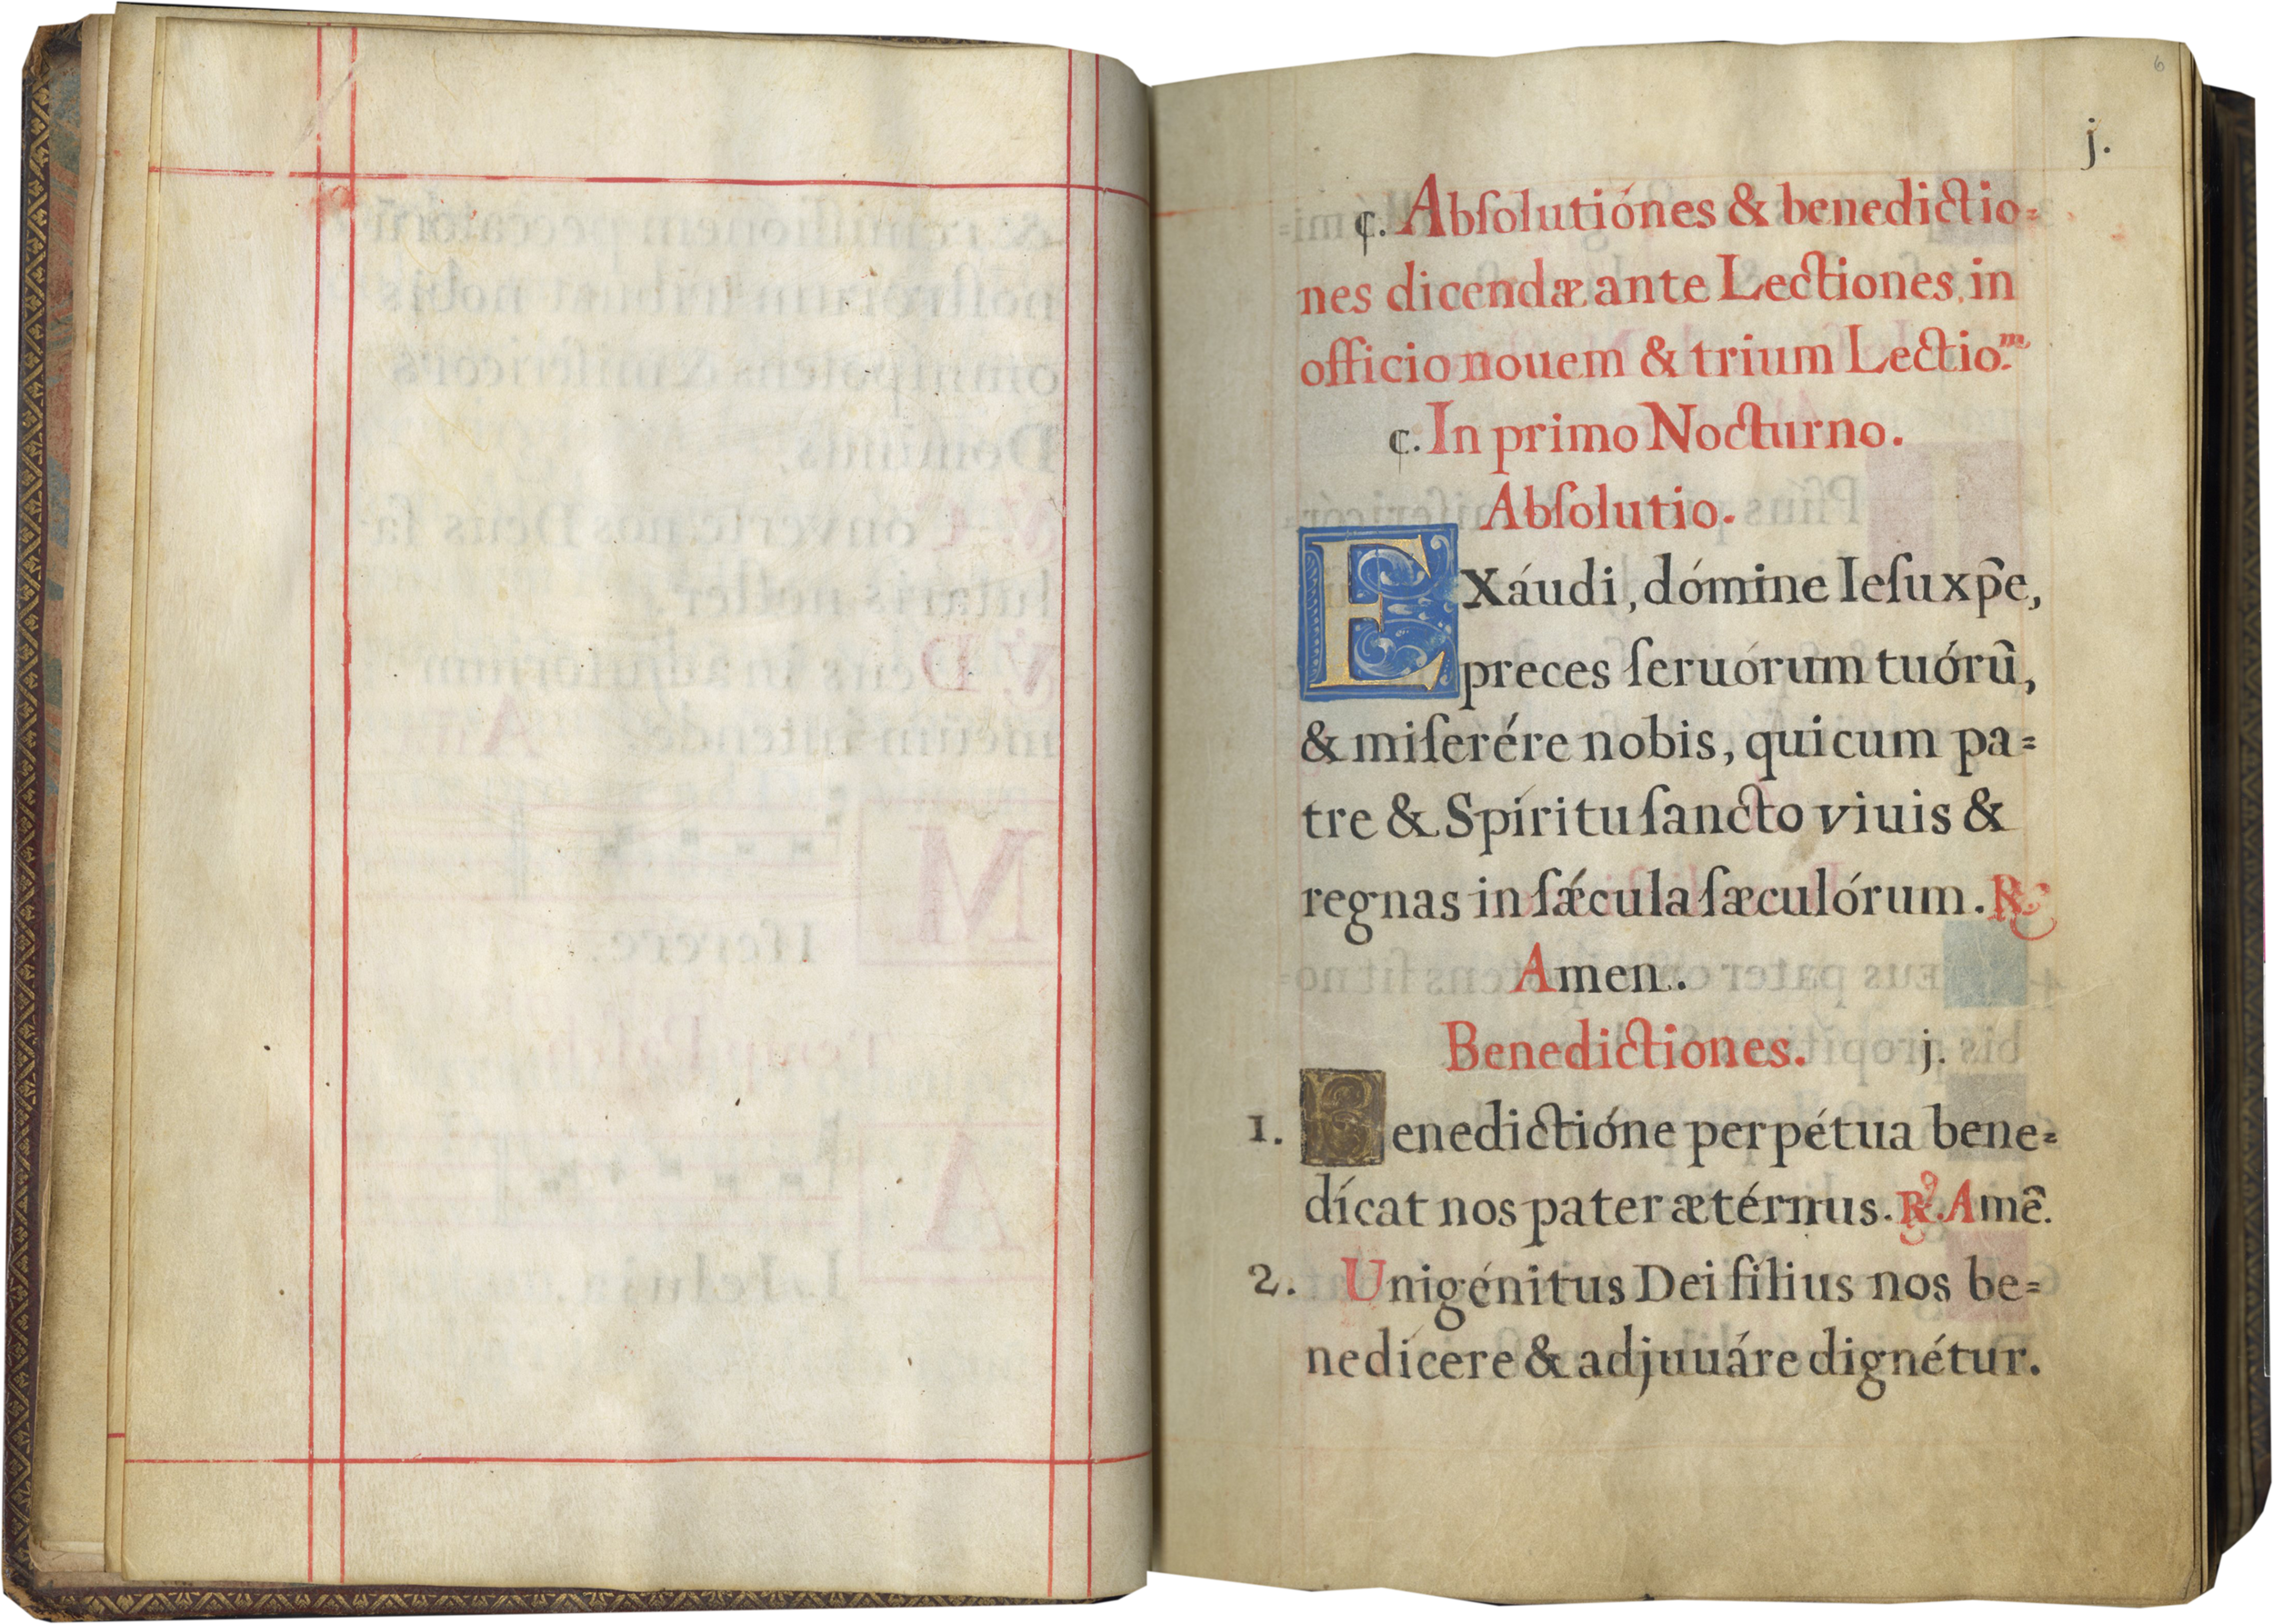 6
j.
¢. Abſolutiónes & benedictio=
nes dicendæ ante Lectiones, in
officio nouem & trium Lectio.ᵐ
¢. In primo Nocturno.
Abſolutio.
EXáudi, dómine Ieſu xp̃e,
preces ſeruórum tuórũ,
& miſerére nobis, qui cum pa=
tre & Spíritu ſancto viuis &
regnas in ſǽcula ſæculórum. ℟.
Amen.
Benedictiones. j.
1. Benedictióne perpétua bene=
dícat nos pater ætérnus. ℟. Amẽ.
2. Unigénitus Dei filius nos be=
nedícere & adjuuáre dignétur.